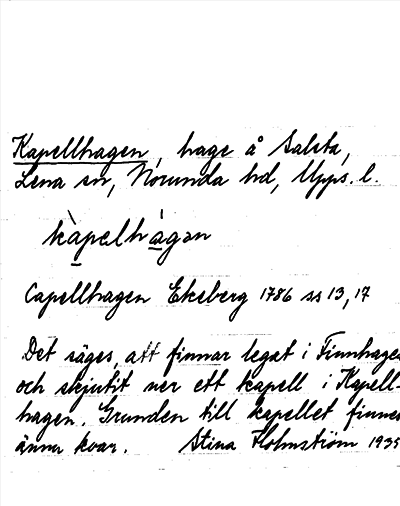 Kapellhagen, hage å Salsta,
Lena sn, Norunda hd, Upps. l.
kàpelhágan
Capellhagen Ekeberg 1786 ss 13, 17
Det säges, att finnar legat i Finnhagen
och skjutit ner ett kapell i Kapell-
hagen. Grunden till kapellet finnes
ännu kvar. Stina Holmström 1935